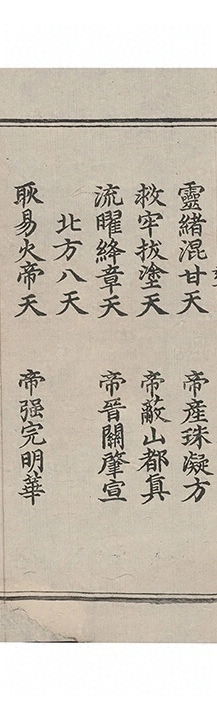 靈緒混甘天 帝産珠凝方
救牢拔塗天 帝蔽山都真
流曜絳章天 帝晉關肇宣
北方八天
耿易火帝天 帝强完明華